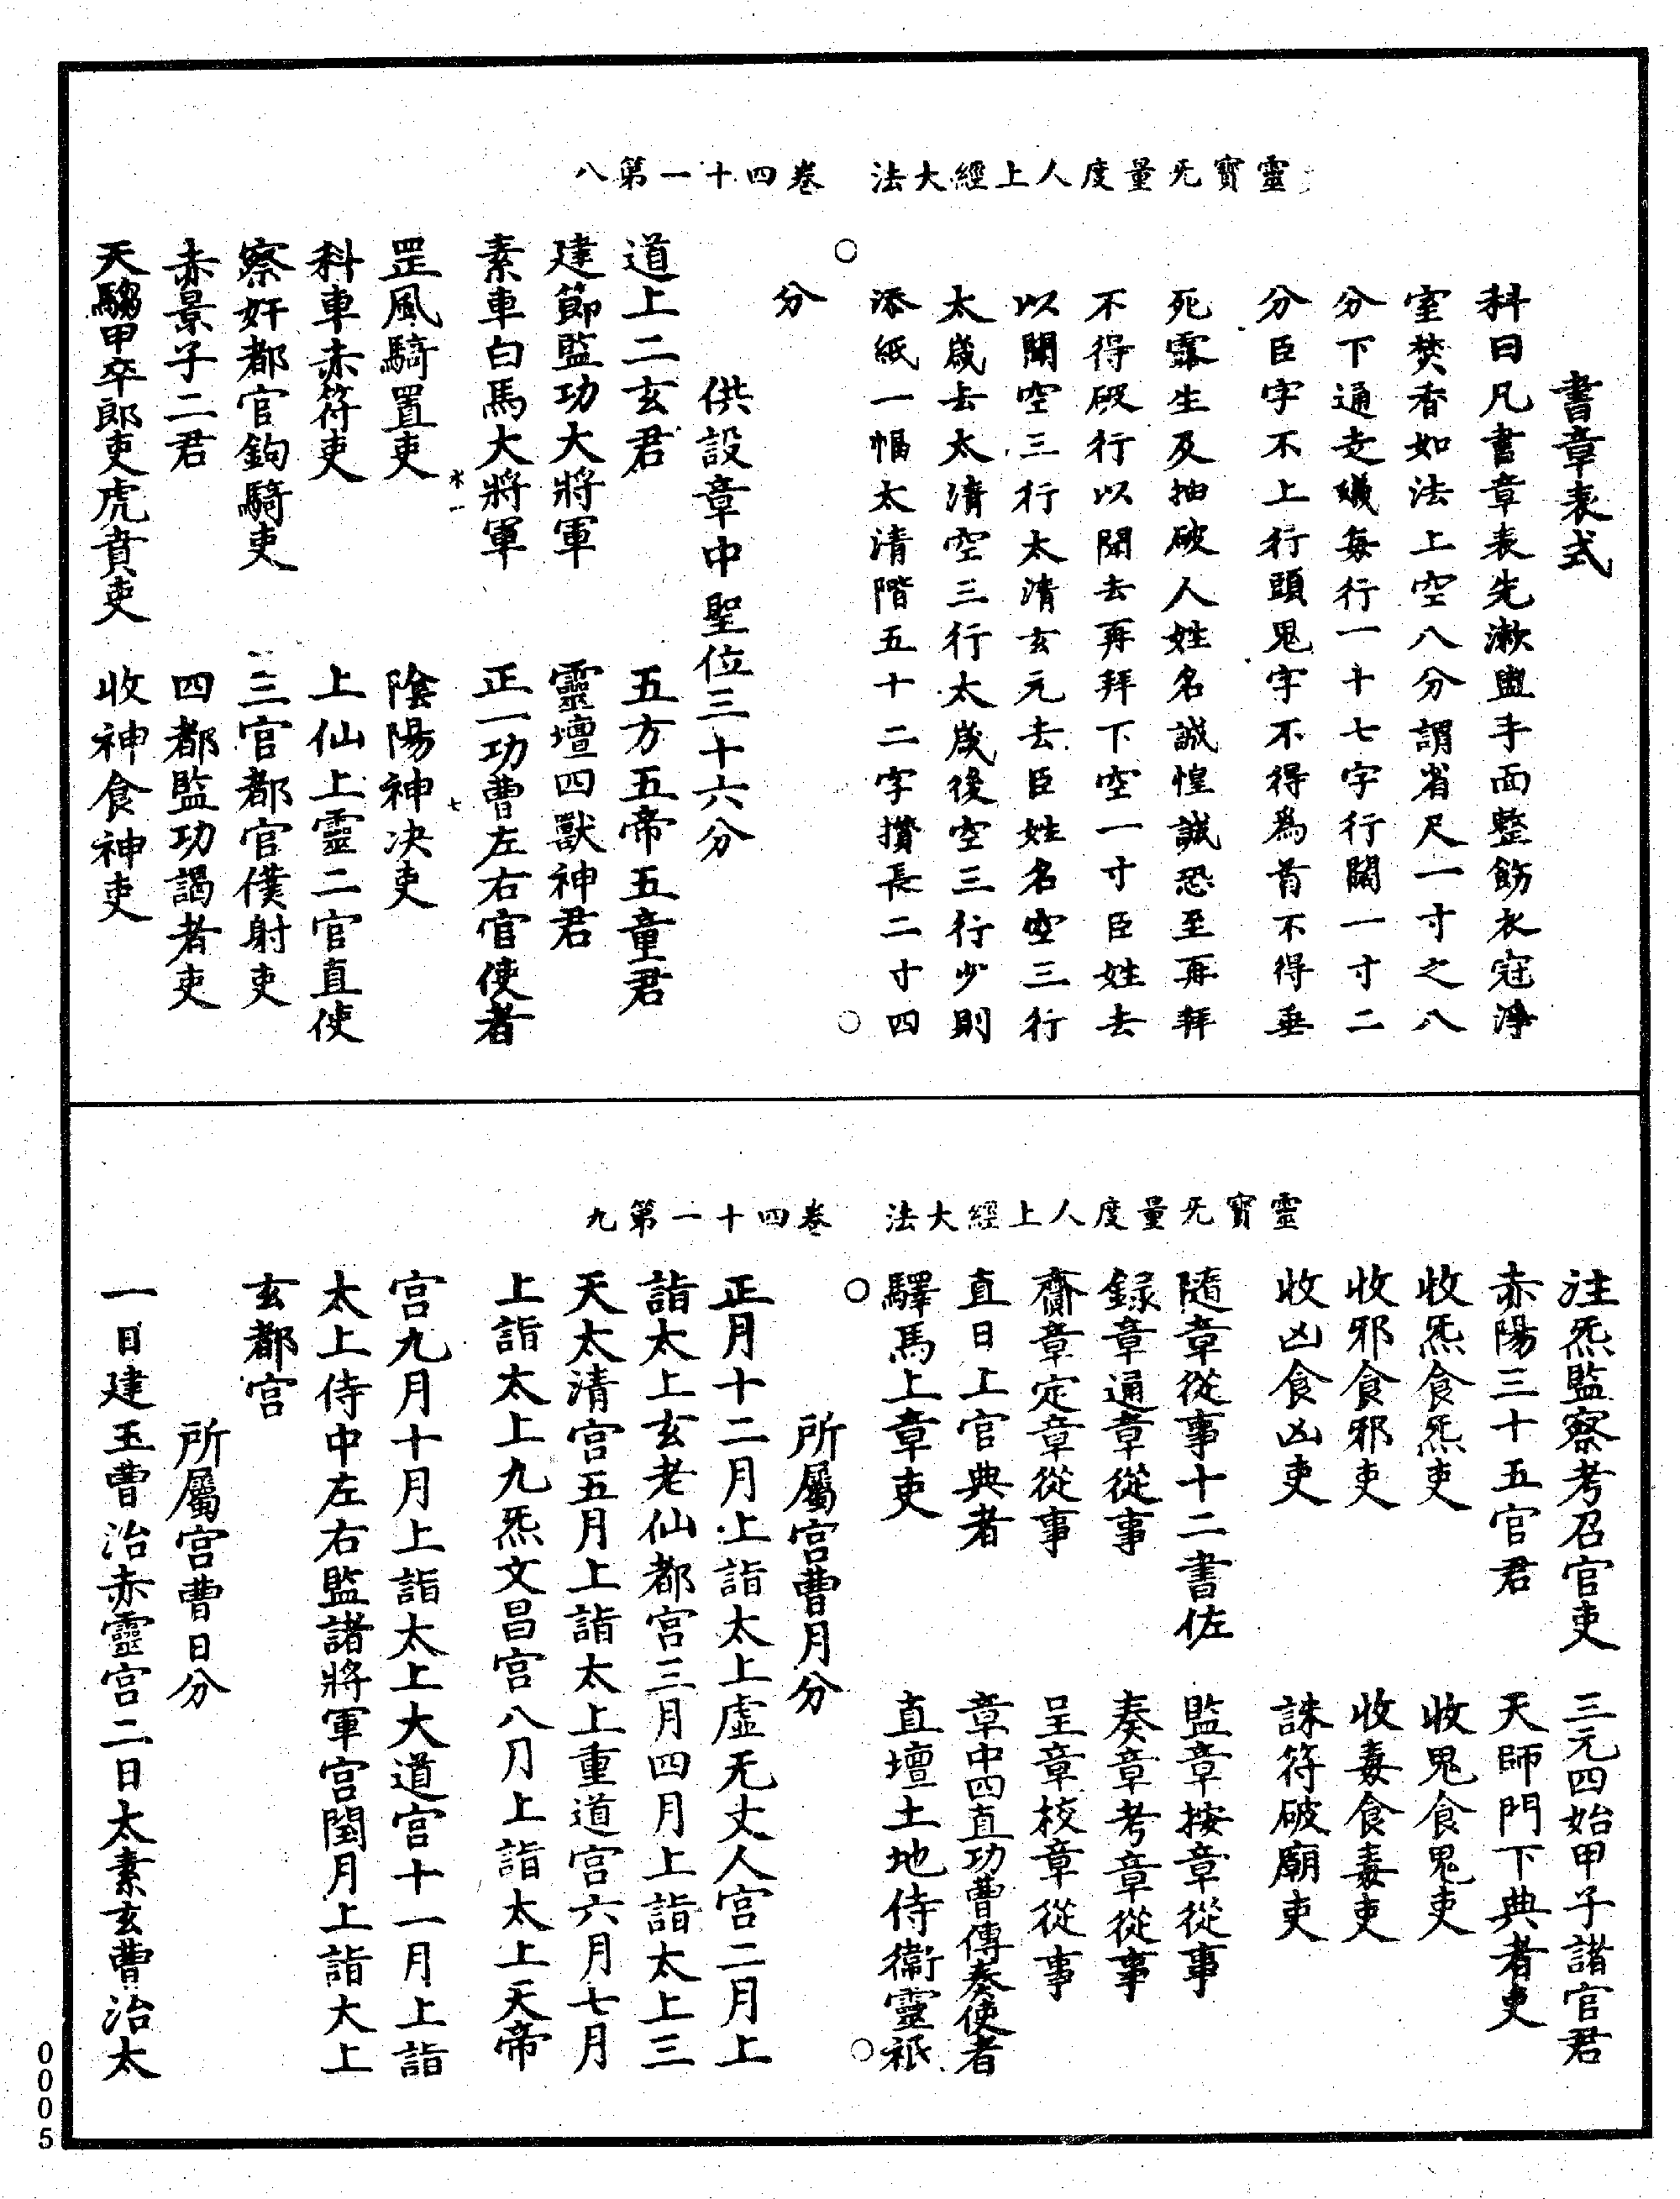 靈寶无量度人上經大法　卷四十一第八
書章表式
科曰凡書章表先漱盥手面整飭衣冠淨
室焚香如法上空八分謂省尺一寸之八
分下通走蟻每行一十七字行闊一寸二
分臣字不上行頭鬼字不得為首不得垂
死露生及抽破人姓名誠惶誠恐至再拜
不得破行以聞去再拜下空一寸臣姓去
以聞空三行太清玄元去臣姓名空三行
太歲去太清空三行太歲後空三行少則
添紙一幅太清階五十二字攢長二寸四
分
供設章中聖位三十六分
道上二玄君　五方五帝五童君
建節監功大將軍　靈壇四獸神君
素車白馬大將軍　正一功曹左右官使者
罡風騎置吏　陰陽神决吏
科車赤符吏　上仙上靈二官直使
察奸都官鉤騎吏　三官都官僕射吏
赤景子二君　四都監功謁者吏
天騶甲卒郎吏虎賁吏　收神食神吏
靈寶无量度人上經大法　卷四十一第九
注炁監察考召官吏　三元四始甲子諸官君
赤陽三十五官君　天師門下典者吏
收炁食炁吏　收鬼食鬼吏
收邪食邪吏　收毒食毒吏
收凶食凶吏　誅符破廟吏
隨章從事十二書佐　監章按章從事
録章通章從事　奏章考章從事
齎章定章從事　呈章校章從事
直日上官典者　章中四直功曹傳奏使者
驛馬上章吏　直壇土地侍衞靈祇
所屬宫曹月分
正月十二月上詣太上虛无丈人宫二月上
詣太上玄老仙都宫三月四月上詣太上三
天太清宫五月上詣太上重道宫六月七月
上詣太上九炁文昌宫八月上詣太上天帝
宫九月十月上詣太上大道宫十一月上詣
太上侍中左右監諸將軍宫閏月上詣大上
玄都宫
所屬宫曹日分
一日建玉曹治赤靈宫二日太素玄曹治太
0005